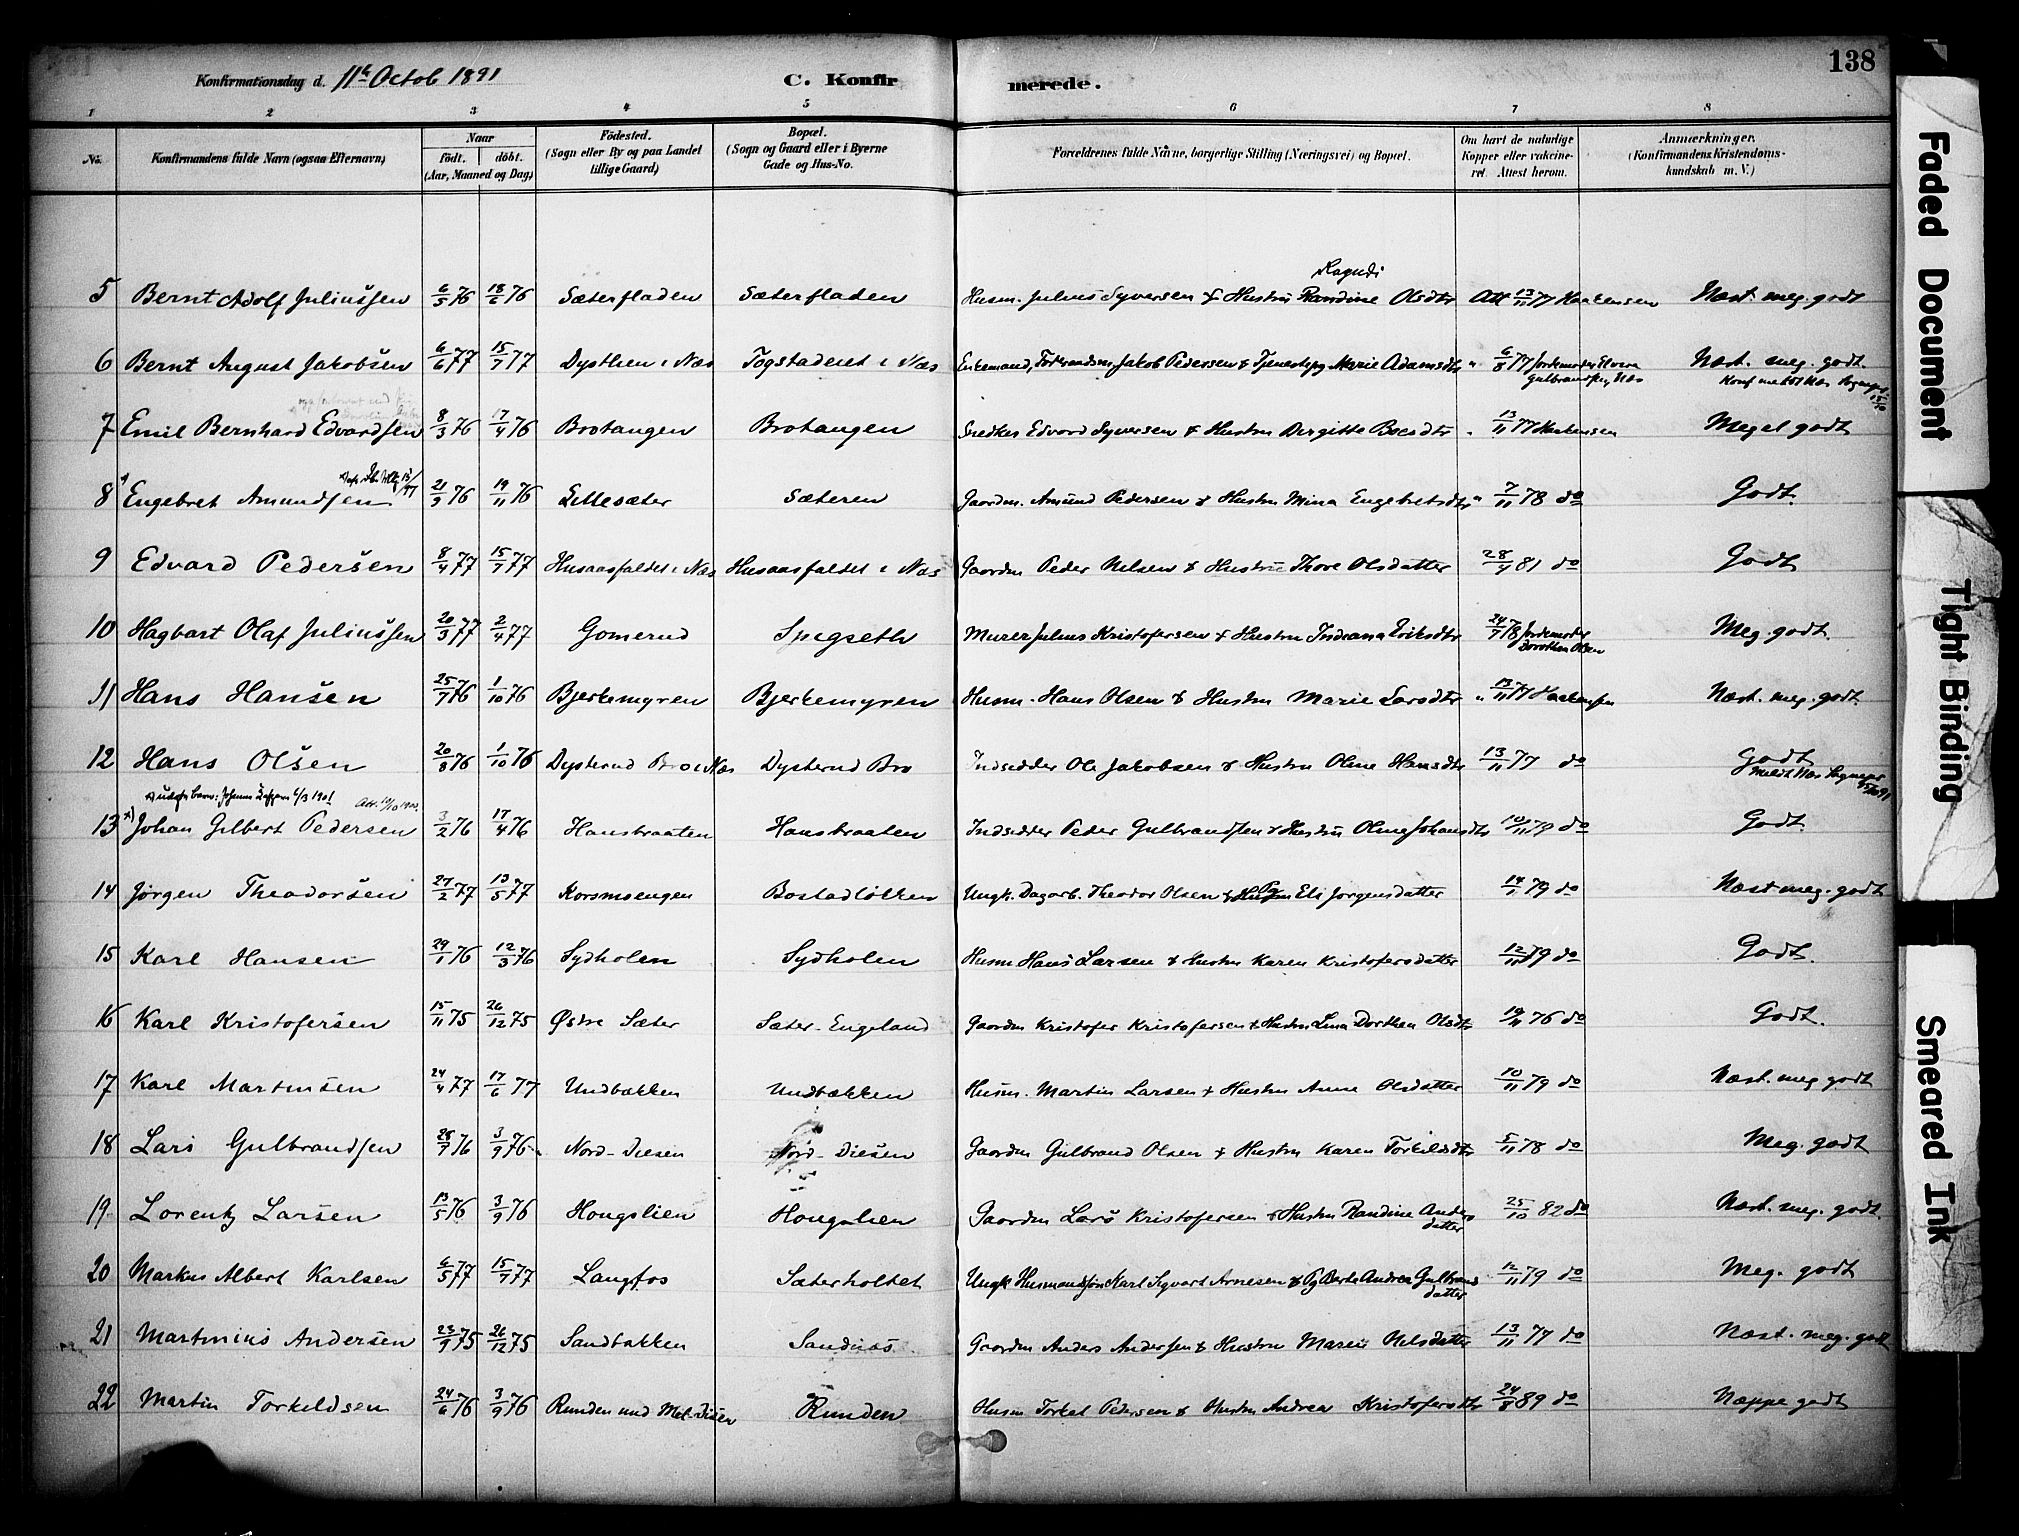 138
Konfirmationsdag d. 11te Octob 1891 C. Konfirmerede.
1 2 3 4 5 6 7 8
No. Konfirmandens fulde Navn (ogsaa Efternavn) Naar født. døbt. (Aar, Maaned og Dag) Födested. (Sogn eller By og paa Landet tillige Gaard) Bopæl. (Sogn og Gaard eller i Byerne Gade og Hus-No. Forældrenes fulde Navne, borgerlige Stilling (Næringsvei) og Bopæl. Om havt de naturlige Kopper eller vakcineret. Attest herom. Anmærkninger. (Konfirmandens Kristendomskundskab m. V.)
Ragndi
5 Bernt Adolf Juliussen 6/5 76 18/6 76 Sæterfladen Sæterfladen Husm. Julius Syversen & Hustru Randine Olsdtr Att 13/11 77 Haakensen Næst. meg. godt
6 Bernt August Jakobsen 6/6 77 15/7 77 Dysthen i Næs Togstaderet i Næs Enkemand, Jakob Pedersen & Marie Adamsdtr " 6/8 77 Jordemoder Gulbrandsen, Næs Næst. meg. godt.
7 Emil Bernhard Edvardsen 8/3 76 17/4 76 Brotangen Brotangen Snedker Edvard Syversen & Hustru Birgitte Boesdtr " 13/11 77 Haakensen Meget godt
8 Engebret Amundsen 21/9 76 19/11 76 Lillesæter Sæteren Gaardm. Amund Pedersen & Hustru Mina Engebretsdtr " 7/11 78 do Godt.
9 Edvard Pedersen 8/4 77 15/7 77 Husaasfaldet i Næs Husaasfaldet i Næs Gaardm Peder Nilsen & Hustru Thore Olsdatter 28/4 81 do Godt
10 Hagbart Olaf Juliussen 20/3 77 2/4 77 Gomerud Spigseth Murer Julius Kristofersen & Hustru Indiana Eriksdtr 24/7 78 Jordemoder Dorothea Olsen Meg. godt.
11 Hans Hansen 25/7 76 1/10 76 Bjerkemyren Bjerkemyren Husm. Hans Olsen & Hustru Marie Larsdtr " 13/11 77 Haakensen Næst. meg. godt.
12 Hans Olsen 20/8 76 1/10 76 Dysterud Bro i Næs Dysterud Bro Indsidder Ole Jakobsen & Hustru Oline Hansdtr 13/11 77 do Godt
13 Johan Gilbert Pedersen 3/2 76 17/4 76 Hansbraaten Hansbraaten Indsidder Peder Gulbrandsen & Hustru Oline Johansdtr 10/11 79 do Godt.
14 Jørgen Theodorsen 27/2 77 13/5 77 Korsmoengen Bostadløkken Ungk. Dagarb. Theodor Olsen & Pg Eli Jørgensdatter 14/1 79 do Næst meg. godt
15 Karl Hansen 29/1 76 12/3 76 Sydholen Sydholen Husm Hans Larsen & Hustru Karen Kristofersdatter 12/11 79 do Godt.
16 Karl Kristofersen 15/11 75 26/12 75 Østre Sæter Sæter-Engeland Gaardm Kristofer Kristofersen & Hustru Lina Dorthea Olsdtr 19/11 76 do Godt.
17 Karl Martinsen 24/4 77 17/6 77 Undbakken Undbækken Husm. Martin Larsen & Hustru Anne Olsdatter 10/11 79 do Næst. meg godt
18 Lars Gulbrandsen 28/7 76 3/9 76 Nord-Diesen Nord-Diesen Gaardm Gulbrand Olsen & Hustru Karen Torkildsdtr 5/11 78 do Meg. godt
19 Lorentz Larsen 13/5 76 3/9 76 Hougslien Hougslien Gaardm Lars Kristofersen & Hustru Randine Andersdatter 25/10 82 do Næst. meg. godt.
20 Markus Albert Karlsen 6/5 77 15/7 77 Langfos Sæterholtet Ungk Husmandsøn Karl Sigvart Arnesen & Pg Berte Andrea Gulbrandsdatter 12/11 79 do Meg. godt
21 Martinius Andersen 23/9 75 26/12 75 Sandbakken Sandnæs Gaardm Anders Andersen & Hustru Maren Nilsdatter 13/11 77 do Næst. meg. godt
22 Martin Torkildsen 24/6 76 3/9 76 Runden und Mel. Disen Runden Husm Torkel Pedersen & Hustru Andrea Kristofersdtr 24/8 89 do Næppe godt
Faded Document
Tight Binding
Smeared Ink